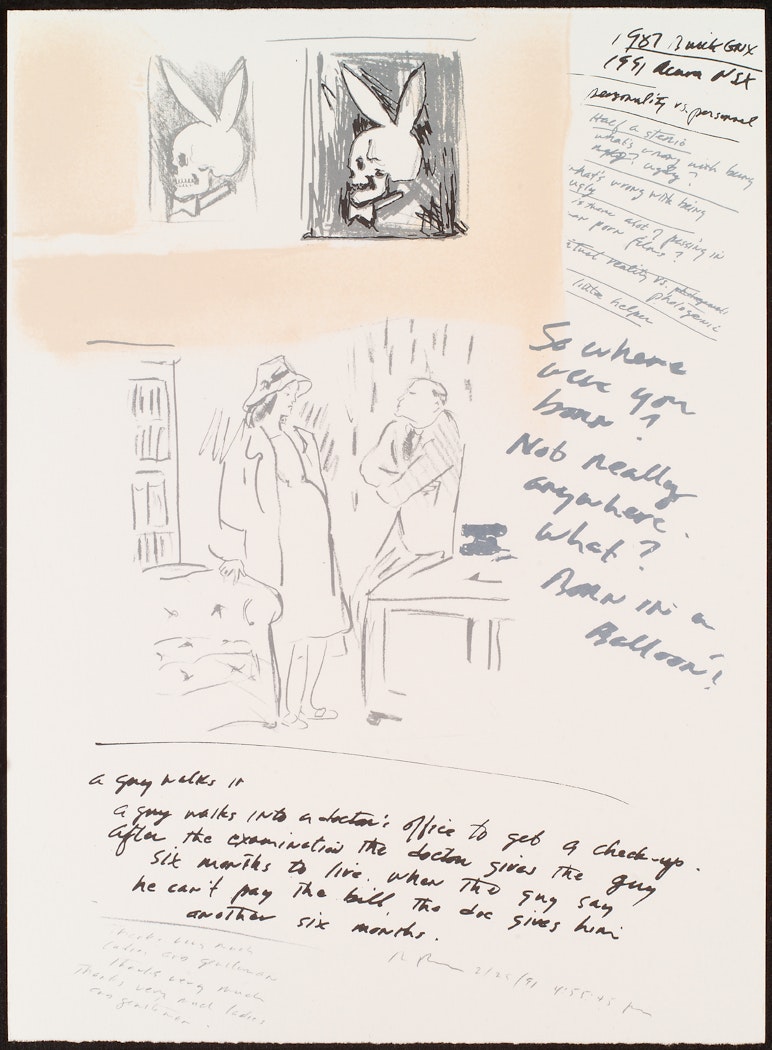 1987 Buick GNX
1991 Acura NSX
personality vs. personnel
Half a stenio
what's wrong with being
ugly? ugly?
what's wrong with being
ugly
is there alot of passing in
porn films?
virtual reality vs. photogenic
little helper
So where
were you
born?
Not really
anywhere.
what?
Born in a
Balloon?
a guy walks it
a guy walks into a doctor's office to get a check-up.
After the examination the doctor gives the guy
six months to live. when the guy say
he can't pay the bill the doc gives him
another six months.
thanks very much
ladies and gentleman
thanks very much
thanks very much ladies
and gentleman.
2/25/91 4:55:45 pm